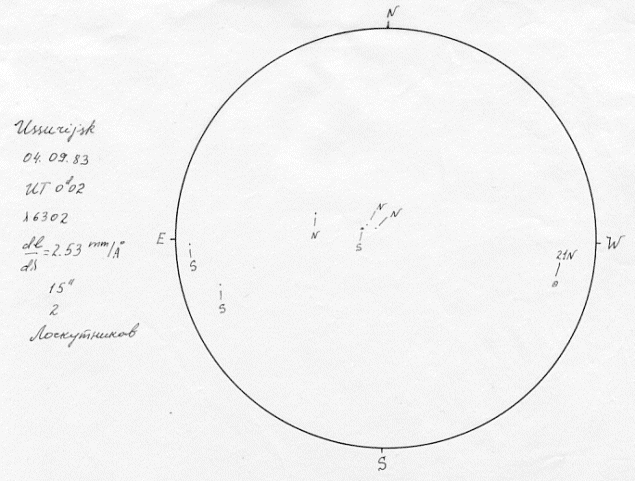 N
Ussurijsk
04.09.83
UT 0ᵈ02
λ6302
dl/dλ = 2.53 mm/Å
15"
2
Лоскутников
E
W
S
N
N
N
S
S
S
21N